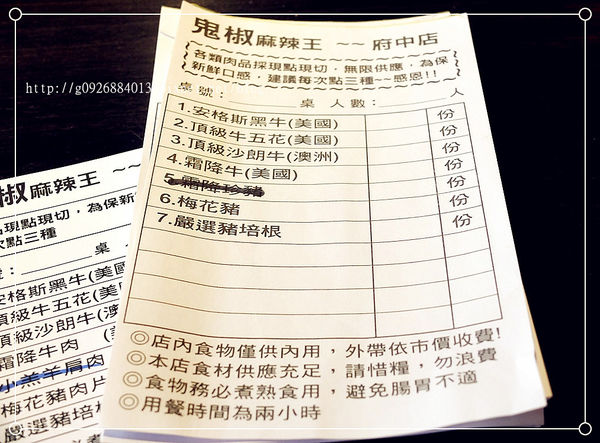 鬼椒麻辣王 ~~ 府中店
各類肉品採現點現切，無限供應，為保
新鮮口感，建議每次點三種~~感恩!!
http://g0926884013
桌號： 桌 人數： 人
1.安格斯黑牛(美國) 份
2.頂級牛五花(美國) 份
3.頂級沙朗牛(澳洲) 份
4.霜降牛(美國) 份
5.霜降珍豬 份
6.梅花豬 份
7.嚴選豬培根 份
◎店內食物僅供內用，外帶依市價收費!
◎本店食材供應充足，請惜糧，勿浪費
◎食物務必煮熟食用，避免腸胃不適
◎用餐時間為兩小時
椒麻辣王 ~~
現點現切，為保新
次點三種
桌
安格斯黑牛(美國
頂級牛五花(美國
頂級沙朗牛(澳
霜降牛肉 (美
小羔羊肩肉
梅花豬肉片
嚴選豬培